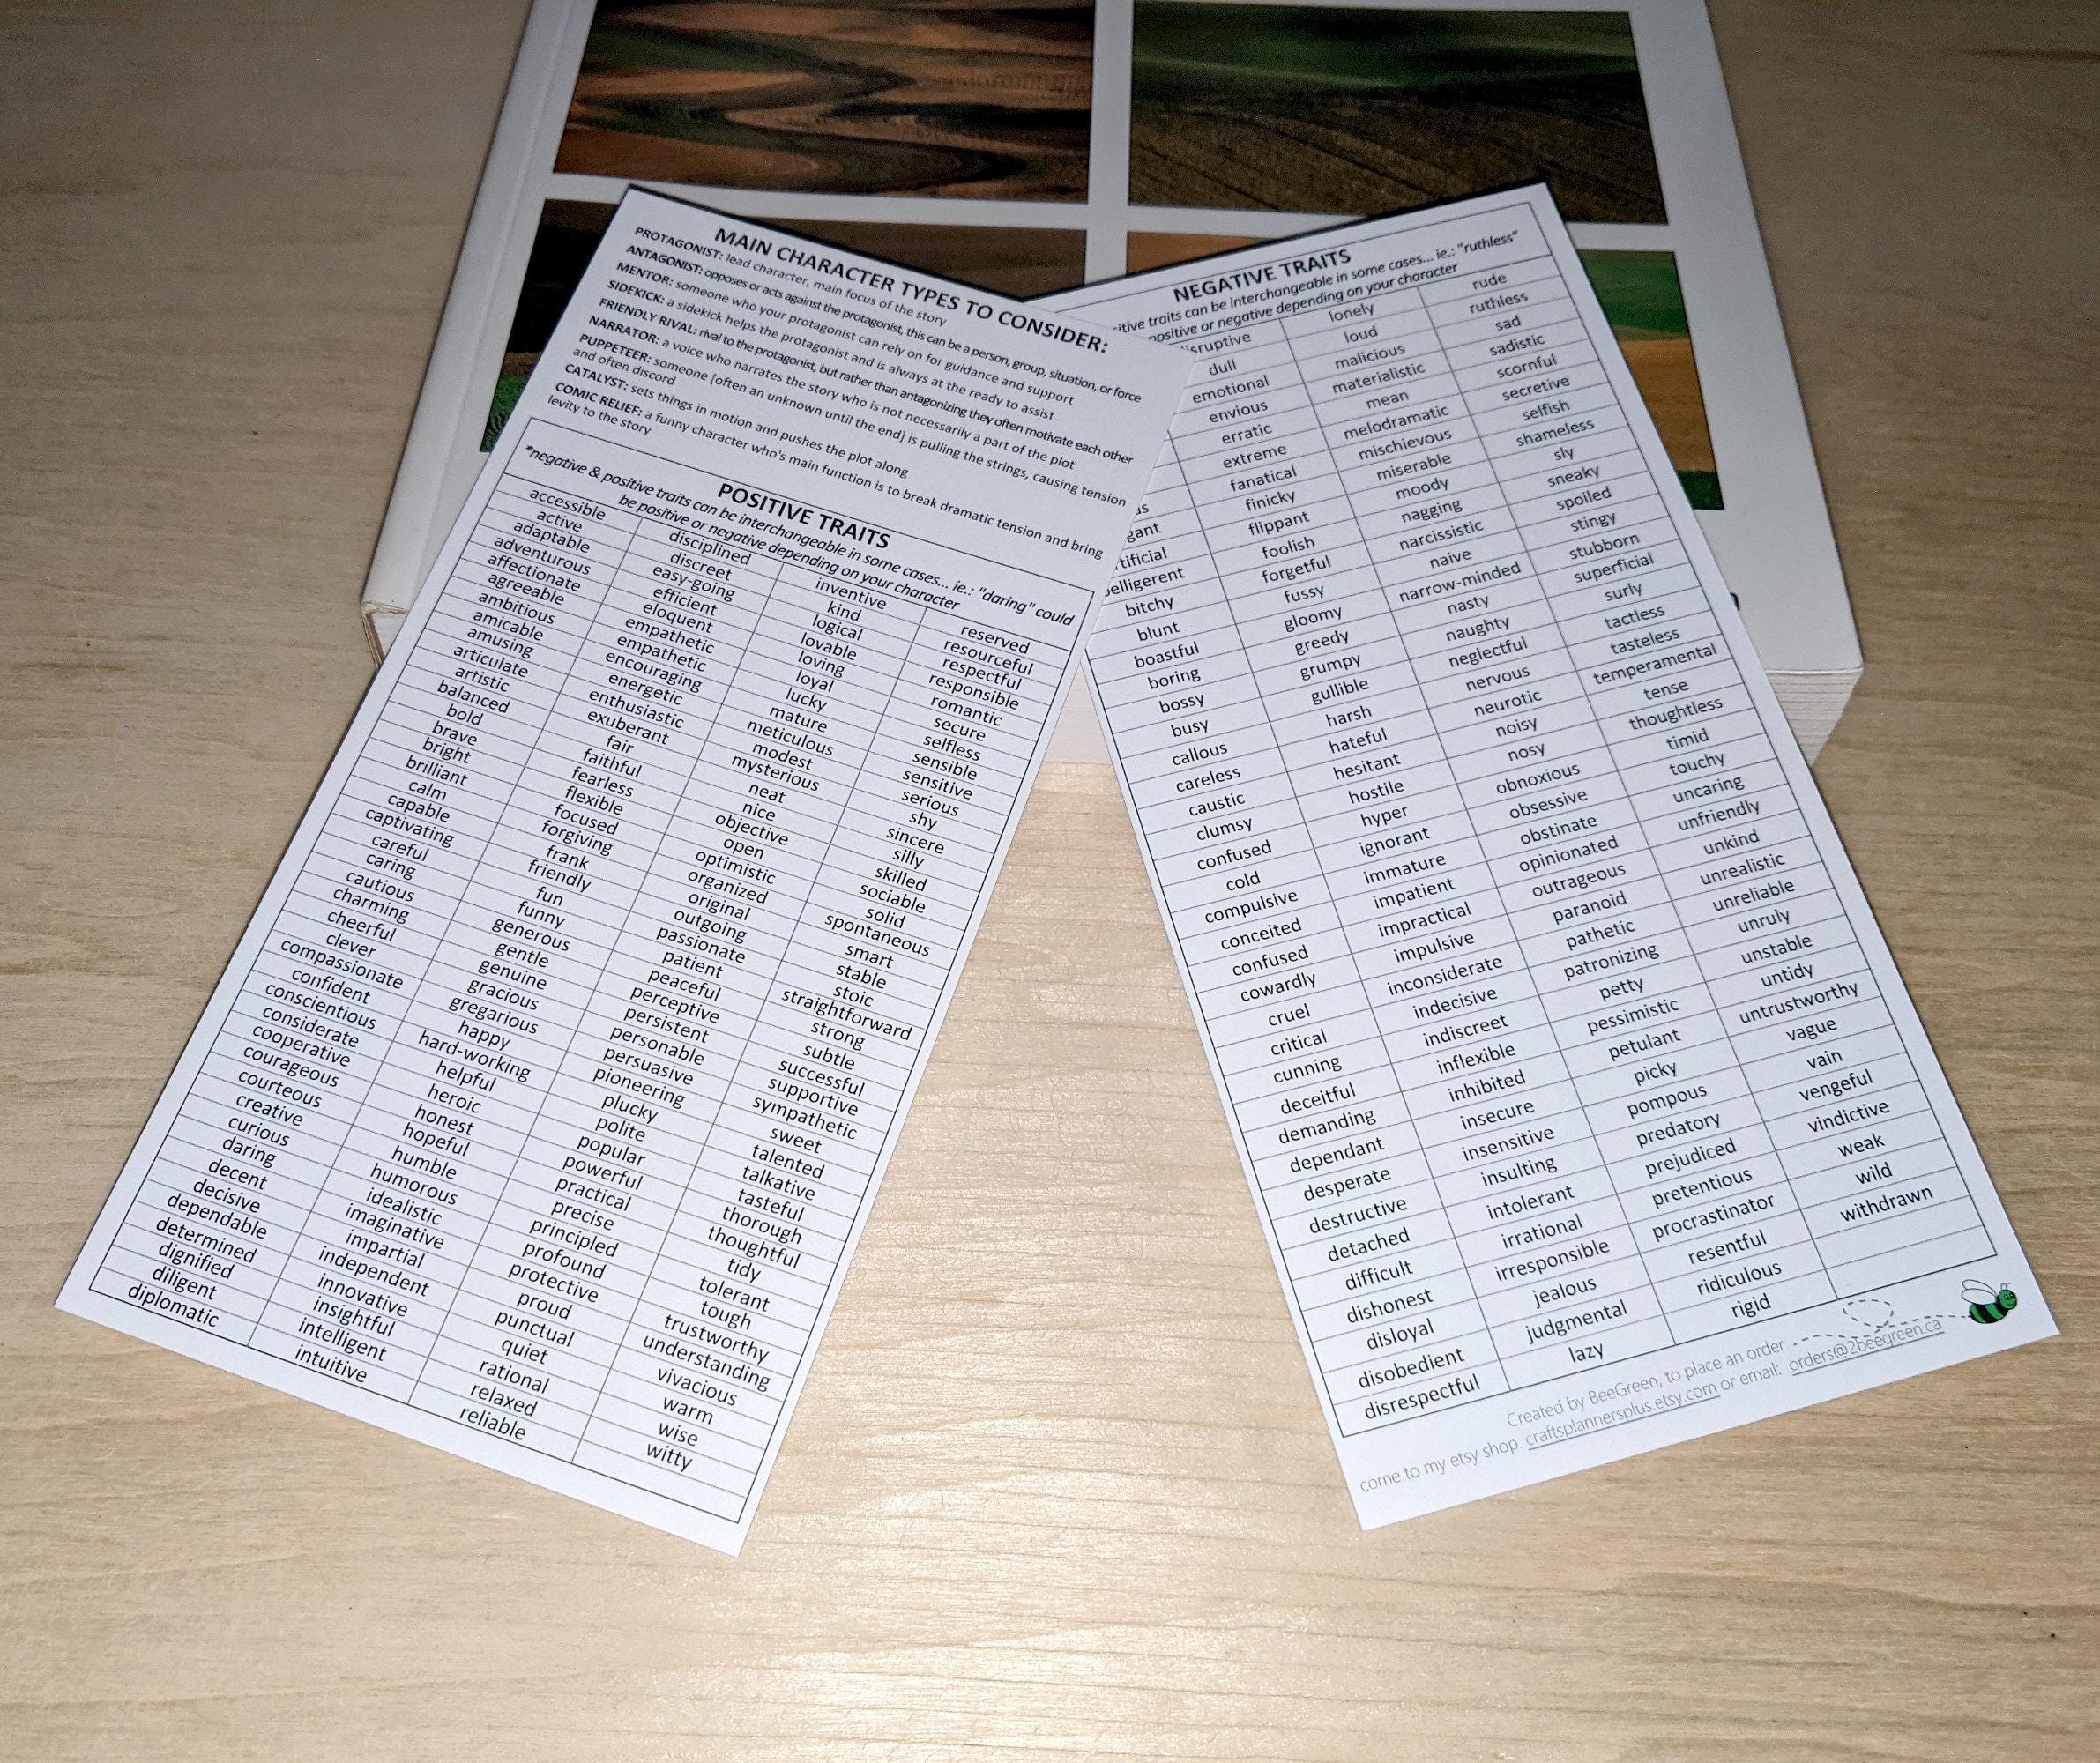 MAIN CHARACTER TYPES TO CONSIDER:
PROTAGONIST: lead character, main focus of the story
ANTAGONIST: opposes or acts against the protagonist, this can be a person, group, situation, or force
MENTOR: someone who your protagonist can rely on for guidance and support
SIDEKICK: a sidekick helps the protagonist and is always at the ready to assist
FRIENDLY RIVAL: rival to the protagonist, but rather than antagonizing they often motivate each other
NARRATOR: a voice who narrates the story who is not necessarily a part of the plot
PUPPETEER: someone [often an unknown until the end] is pulling the strings, causing tension
and often discord
CATALYST: sets things in motion and pushes the plot along
COMIC RELIEF: a funny character who's main function is to break dramatic tension and bring
levity to the story
POSITIVE TRAITS
*negative & positive traits can be interchangeable in some cases... ie.: "daring" could
be positive or negative depending on your character
accessible
active
adaptable
adventurous
affectionate
agreeable
ambitious
amicable
amusing
articulate
artistic
balanced
bold
brave
bright
brilliant
calm
capable
captivating
careful
caring
cautious
charming
cheerful
clever
compassionate
confident
conscientious
considerate
cooperative
courageous
courteous
creative
curious
daring
decent
decisive
dependable
determined
dignified
diligent
diplomatic
disciplined
discreet
easy-going
efficient
eloquent
empathetic
empathetic
encouraging
energetic
enthusiastic
exuberant
fair
faithful
fearless
flexible
focused
forgiving
frank
friendly
fun
funny
generous
gentle
genuine
gracious
gregarious
happy
hard-working
helpful
heroic
honest
hopeful
humble
humorous
idealistic
imaginative
impartial
independent
innovative
insightful
intelligent
intuitive
inventive
kind
logical
lovable
loving
loyal
lucky
mature
meticulous
modest
mysterious
neat
nice
objective
open
optimistic
organized
original
outgoing
passionate
patient
peaceful
perceptive
persistent
personable
persuasive
pioneering
plucky
polite
popular
powerful
practical
precise
principled
profound
protective
proud
punctual
quiet
rational
relaxed
reliable
reserved
resourceful
respectful
responsible
romantic
secure
selfless
sensible
sensitive
serious
shy
sincere
silly
skilled
sociable
solid
spontaneous
smart
stable
stoic
straightforward
strong
subtle
successful
supportive
sympathetic
sweet
talented
talkative
tasteful
thorough
thoughtful
tidy
tolerant
tough
trustworthy
understanding
vivacious
warm
wise
witty
NEGATIVE TRAITS
traits can be interchangeable in some cases... ie.: "ruthless"
positive or negative depending on your character
bitchy
blunt
boastful
boring
bossy
busy
callous
careless
caustic
clumsy
confused
cold
compulsive
conceited
confused
cowardly
cruel
critical
cunning
deceitful
demanding
dependant
desperate
destructive
detached
difficult
dishonest
disloyal
disobedient
disrespectful
dull
emotional
envious
erratic
extreme
fanatical
finicky
flippant
foolish
forgetful
fussy
gloomy
greedy
grumpy
gullible
harsh
hateful
hesitant
hostile
hyper
ignorant
immature
impatient
impractical
impulsive
inconsiderate
indecisive
indiscreet
inflexible
inhibited
insecure
insensitive
insulting
intolerant
irrational
irresponsible
jealous
judgmental
lazy
lonely
loud
malicious
materialistic
mean
melodramatic
mischievous
miserable
moody
nagging
narcissistic
naive
narrow-minded
nasty
naughty
neglectful
nervous
neurotic
noisy
nosy
obnoxious
obsessive
obstinate
opinionated
outrageous
paranoid
pathetic
patronizing
petty
pessimistic
petulant
picky
pompous
predatory
prejudiced
pretentious
procrastinator
resentful
ridiculous
rigid
rude
ruthless
sad
sadistic
scornful
secretive
selfish
shameless
sly
sneaky
spoiled
stingy
stubborn
superficial
surly
tactless
tasteless
temperamental
tense
thoughtless
timid
touchy
uncaring
unfriendly
unkind
unrealistic
unreliable
unruly
unstable
untidy
untrustworthy
vague
vain
vengeful
vindictive
weak
wild
withdrawn
Created by BeeGreen, to place an order
come to my etsy shop: craftsplannersplus.etsy.com or email: orders@2beegreen.ca